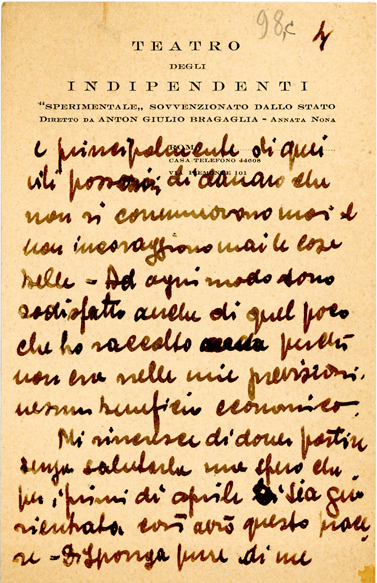 98,c
4
TEATRO
DEGLI
INDIPENDENTI
"SPERIMENTALE„ SOVVENZIONATO DALLO STATO
DIRETTO DA ANTON GIULIO BRAGAGLIA - ANNATA NONA
ROMA
CASA TELEFONO 44608
VIA PIEMONTE 101
e principalmente di quei
vili possessori di danaro che
non si commuovono mai e
non incoraggiono mai le cose
belle - Ad ogni modo sono
sodisfatto anche di quel poco
che ho raccolto perchè
non era nelle mie previsioni
nessun beneficio economico.
Mi rincresce di dover partire
senza salutarla ma spero che
per i primi di aprile Ella sia già
rientrata così avrò questo piace
re - Disponga pure di me